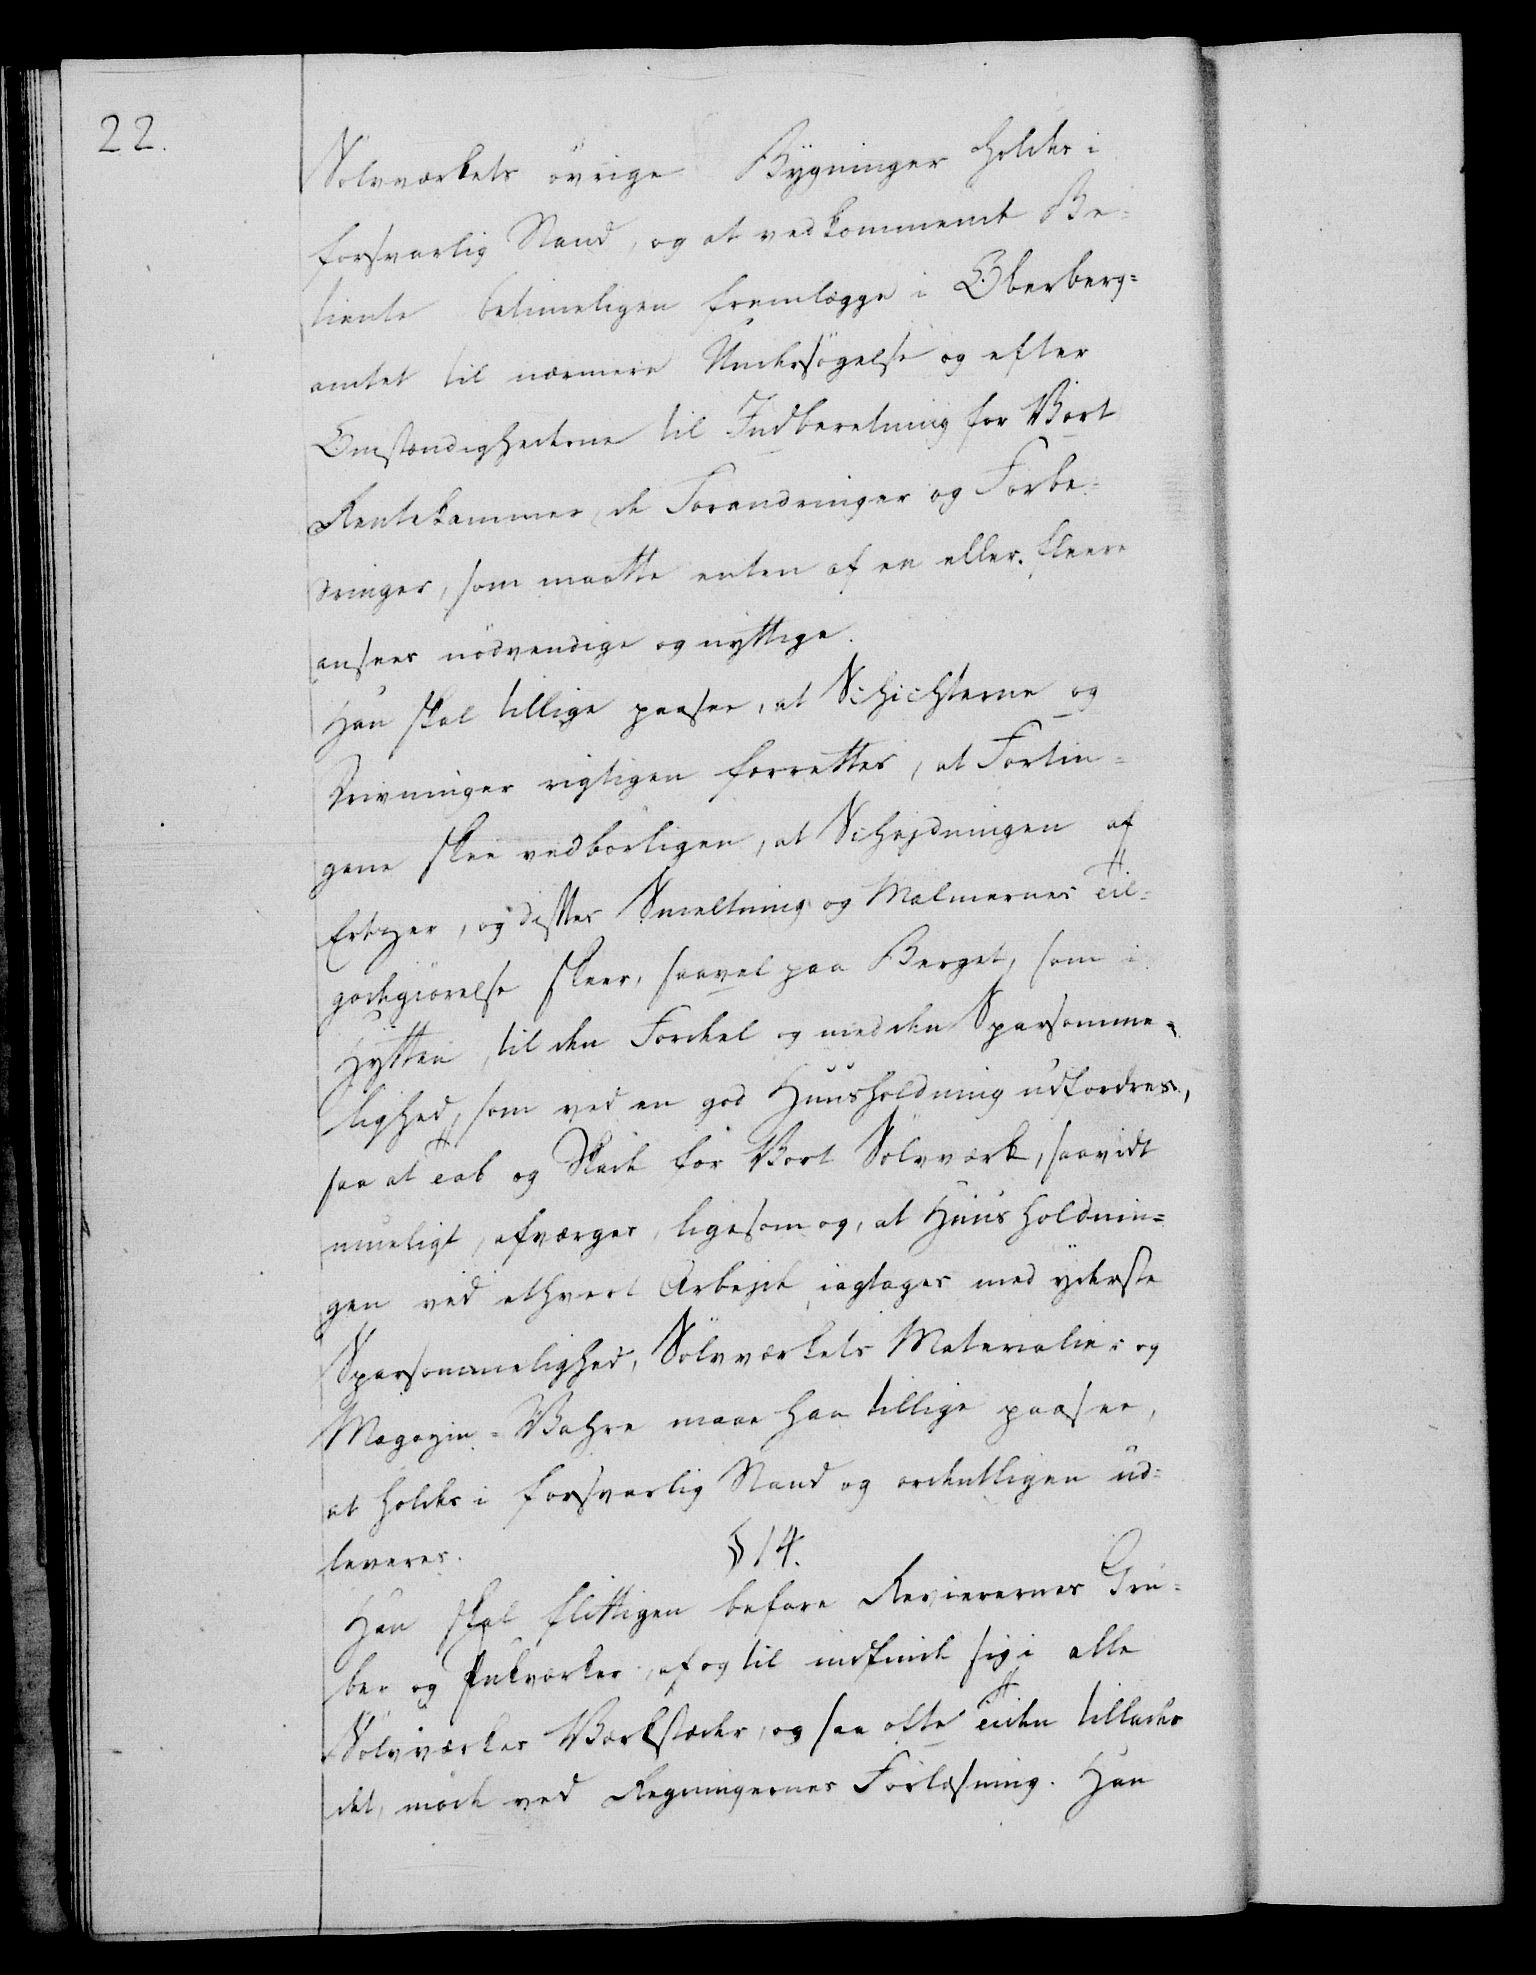 22.
Sölvværkets övrige Bygninger holdes i
forsvarlig Stand, og at vedkommende Be-
tiente betimeligen fremlægge i Oberberg-
amtet til nærmere Undersögelse og efter
Omstændighederne til Indberetning for Vort
Rentekammer, de Forandringer og Forbe-
dringer, som maatte enten af en eller fleere
ansees nödvendige og nyttige.
Han skal tillige paasee, at Schichterne og
Drivninger rigtigen forrettes, at Fortin-
gene skee vedbörligen, at Schejdningen af
Ertzer, og disses Smeltning og Malmernes Til-
godegiörelse skeer, saavel paa Berget, som i
Hytten, til den Fordeel og med den Sparsomme-
lighed, som ved en god Huusholdning udfordres,
saa at Tab og Skade for Vort Sölvværk, saavidt
mueligt, afværges, ligesom og, at Huusholdnin-
gen ved ethvert Arbejde iagtages med yderste
Sparsommelighed, Sölvværkets Materialier og
Magazin-Vahre maae han tillige paasee,
at holdes i forsvarlig Stand og ordentligen ud-
leveres.
§ 14.
Han skal flittigen befare Revierernes Gru-
ber og Pukværker, af og til indfinde sig i alle
Sölvværkes Værkstæder, og saa ofte Tiden tillader
det, möde ved Regningernes Forlæsning. Han